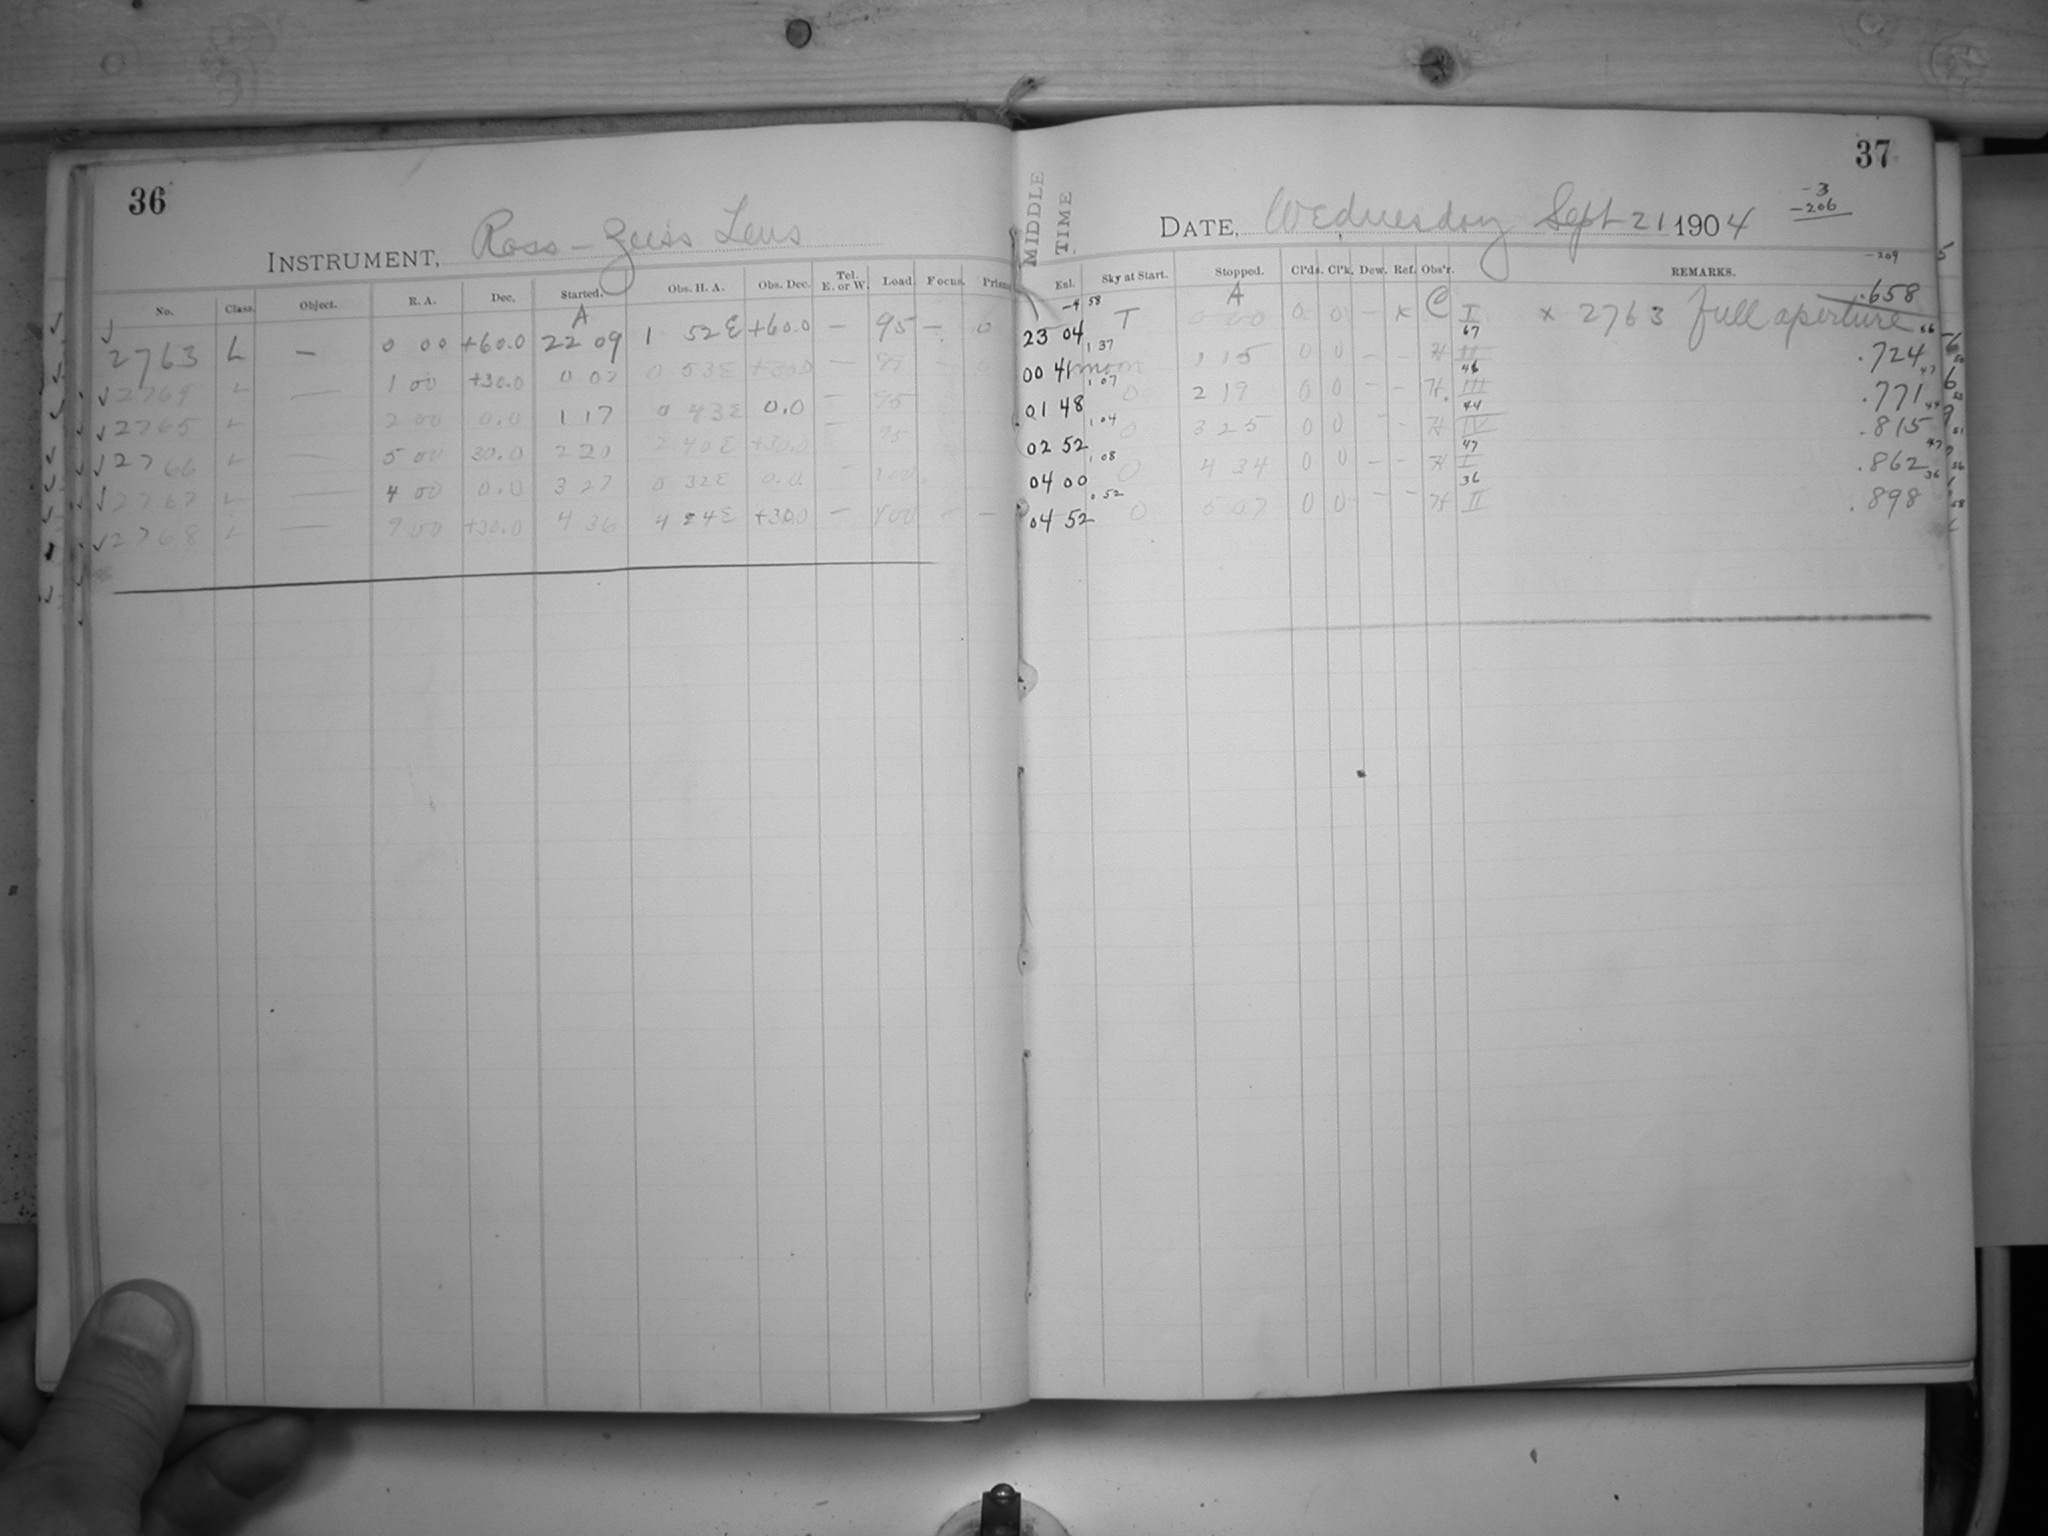 36
INSTRUMENT, Ross-Zeiss Lens
No. Class. Object. R. A. Dec. Started. Obs. H. A. Obs. Dec. Tel. E. or W. Load. Focus. Prism
A
2763 L — 0 00 +60.0 22 09 1 52 E +60.0 — 95 — 0
2764 L — 1 00 +30.0 0 07 0 53 E +30.0 — 95
2765 L — 2 00 0.0 1 17 0 43 E 0.0 — 95
2766 L — 5 00 30.0 2 20 2 40 E +30.0 — 95
2767 L — 4 00 0.0 3 27 0 32 E 0.0 — 100
2768 L — 9 00 +30.0 4 36 4 24 E +30.0 — 100 — —
37
-3
-206
MIDDLE TIME
DATE, Wednesday Sept 21 1904
-209
Enl. Sky at Start. Stopped. Cl'ds. Cl'k. Dew. Ref. Obs'r. REMARKS.
A
-4 58
23 04 T 0 00 0 0 — x C I x 2763 full aperture .658
1 37 67 66
00 41 moon 1 15 0 0 — — H II .724
1 07 46 47
01 48 0 2 19 0 0 — — H. III .771
1 04 44 44
02 52 0 3 25 0 0 — — H IV .815
1 08 47 47
04 00 0 4 34 0 0 — — H I .862
0 52 36 36
04 52 0 5 07 0 0 — — H II .898